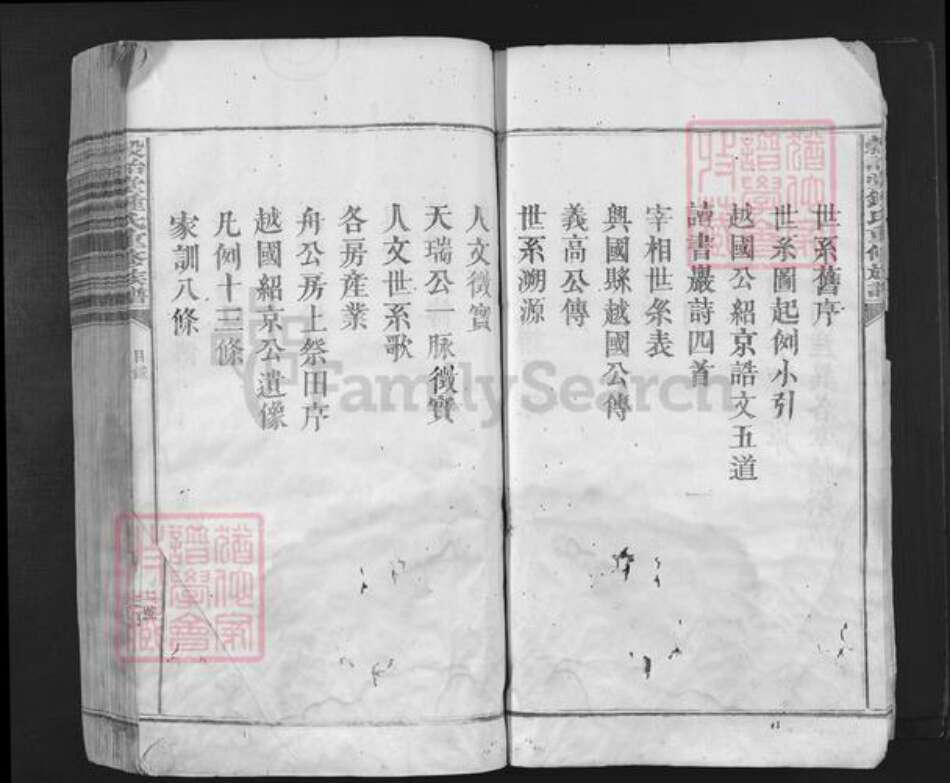 世系舊序
世系圖起例小引
越國公紹京誥文五道
讀書巖詩四首
宰相世系表
興國縣越國公傳
義高公傳
世系溯源
人文徵實
天瑞公一脉徵實
人文世系歌
各房產業
舟公房上祭田序
越國紹京公遺像
凡例十三條
家訓八條
目錄
FamilySearch